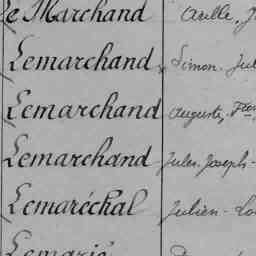 Le Marchand
Lemarchand Simon. Jul
Lemarchand Auguste, Fçois
Lemarchand Jules, Joseph-
Lemaréchal Julien-Lo
Lemarié